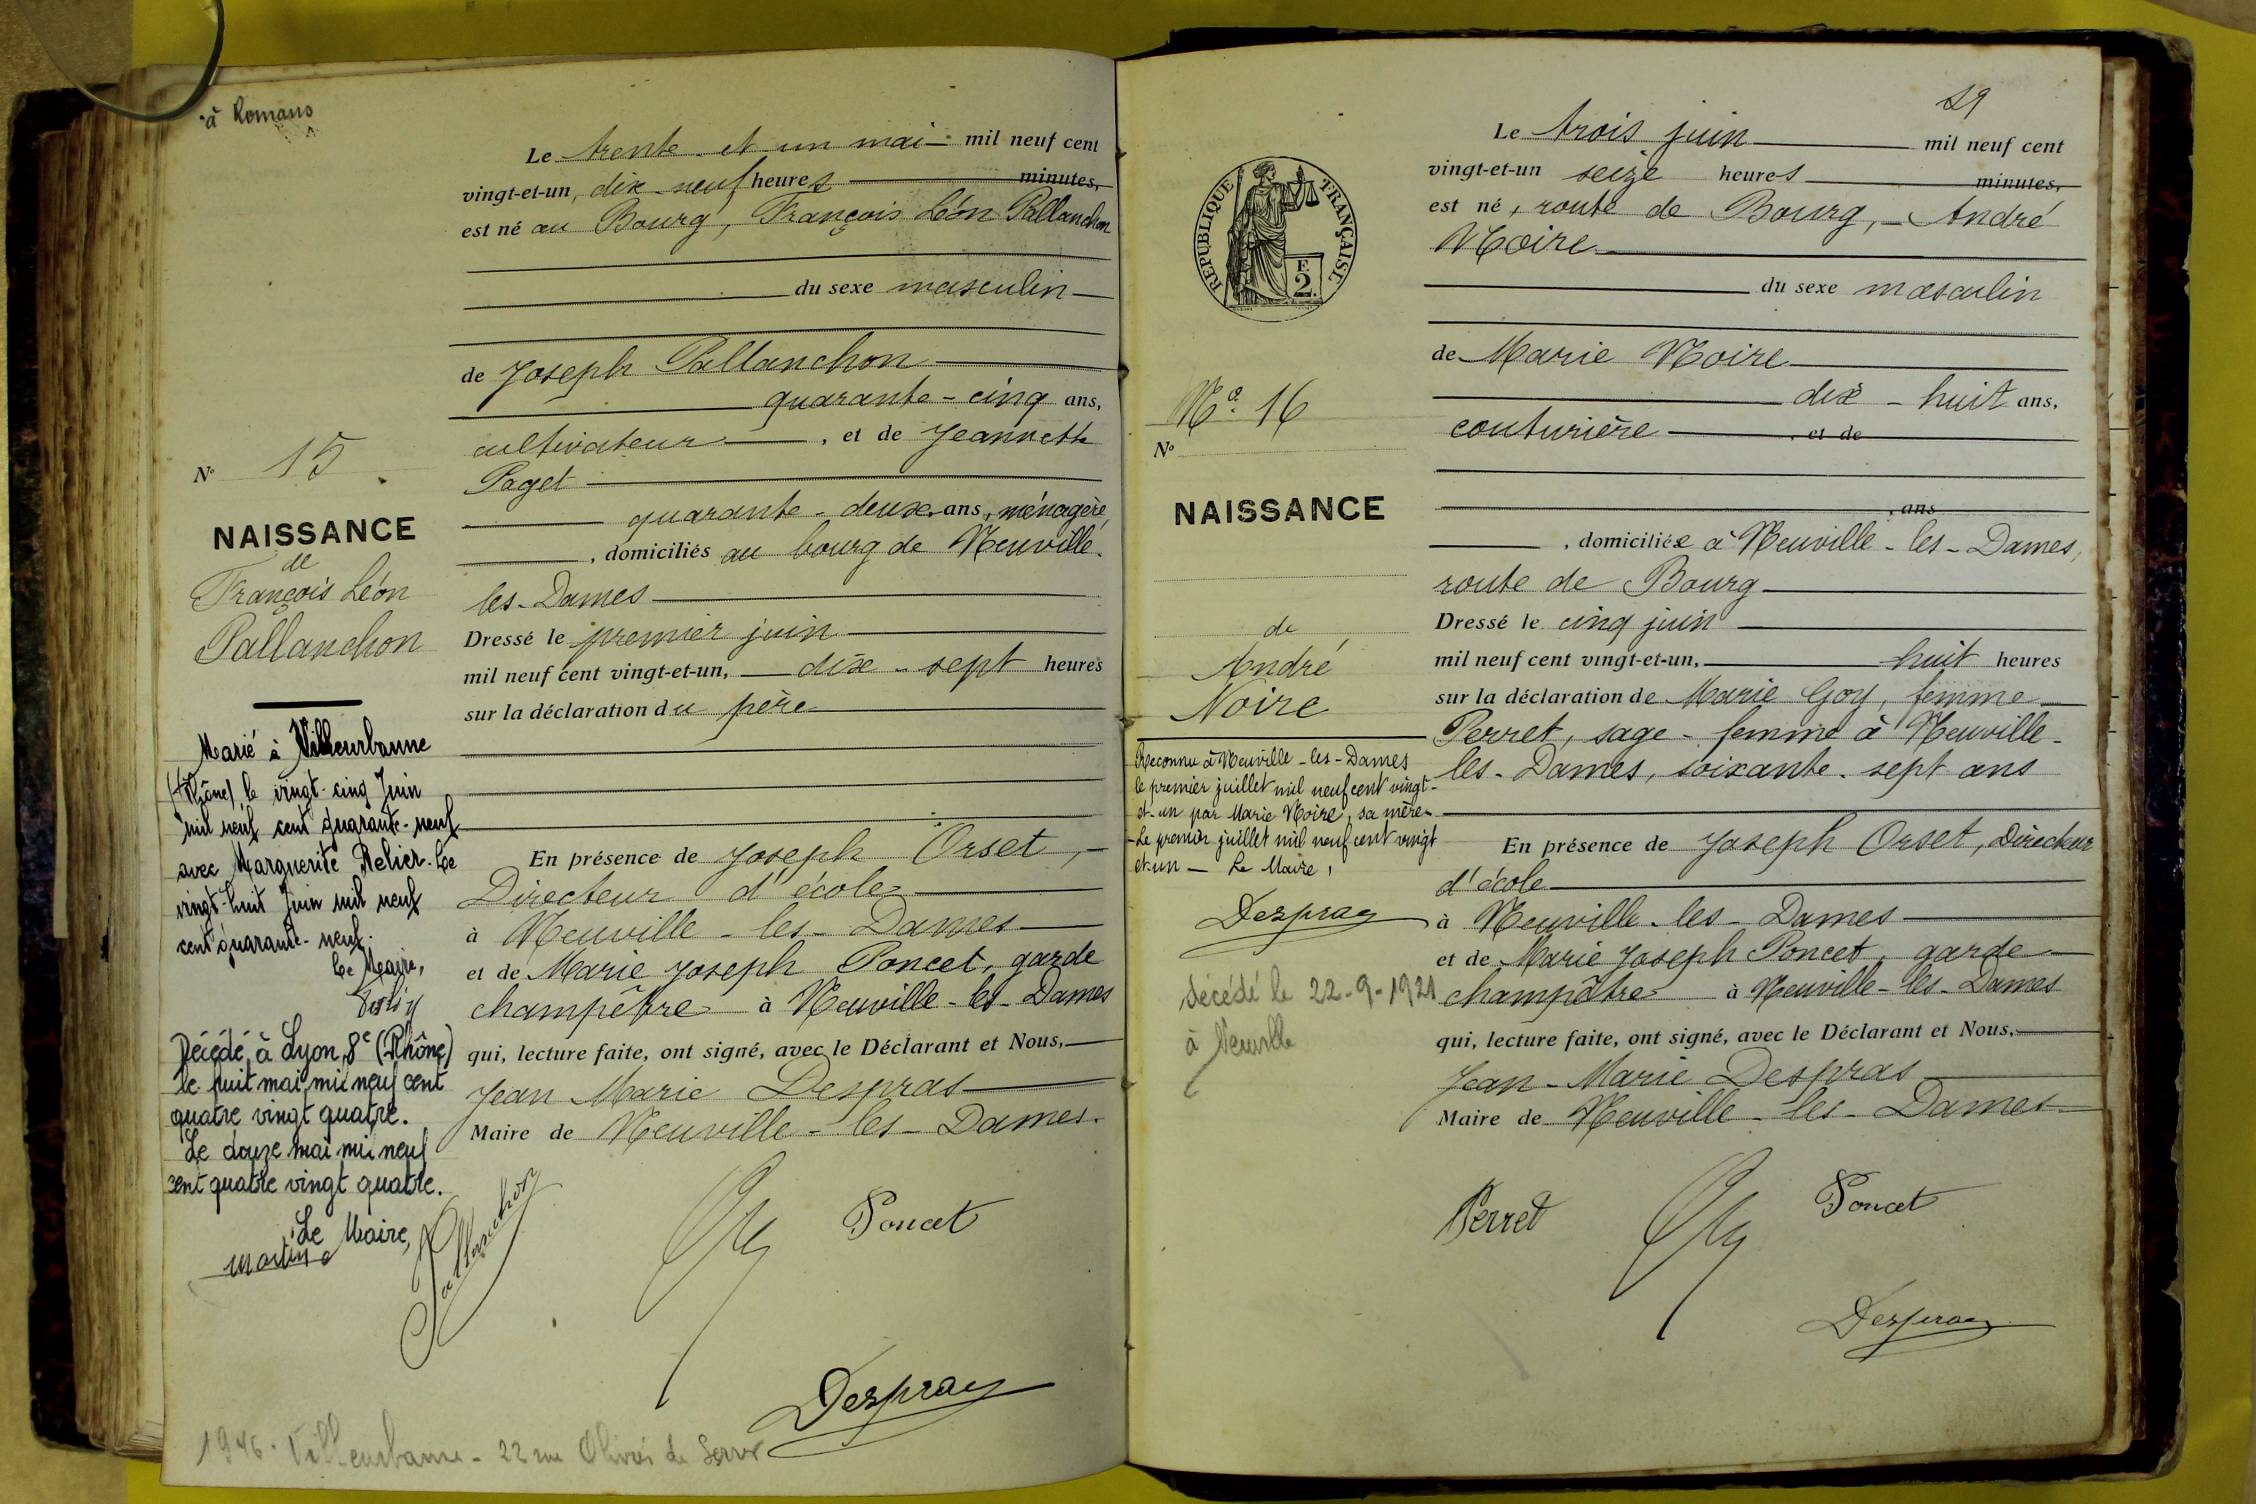 à Romans
Le trente et un mai mil neuf cent
vingt-et-un, dix-neuf heures minutes,
est né au Bourg, François Léon Pallanchon
du sexe masculin
de Joseph Pallanchon
quarante-cinq ans,
cultivateur, et de Jeannette
Paget
quarante-deux ans, ménagère,
, domiciliés au bourg de Neuville-
les-Dames
Dressé le premier juin
mil neuf cent vingt-et-un, dix-sept heures
sur la déclaration du père
En présence de Joseph Orset,
Directeur d'école
à Neuville-les-Dames
et de Marie Joseph Poncet, garde
champêtre à Neuville-les-Dames
qui, lecture faite, ont signé, avec le Déclarant et Nous,
Jean Marie Despras
Maire de Neuville-les-Dames.
Pallanchon
Poncet
Despras
N° 15
NAISSANCE
de
François Léon
Pallanchon
Marié à Villeurbanne
(Rhône) le vingt-cinq Juin
mil neuf cent quarante-neuf
avec Marguerite Relier. Le
vingt-huit Juin mil neuf
cent quarante-neuf.
Le Maire,
Décédé à Lyon 8e (Rhône)
le huit mai mil neuf cent
quatre vingt quatre.
Le douze mai mil neuf
cent quatre vingt quatre.
Le Maire,
1946. Villeurbanne - 22 rue Olivier de Serres
29
RÉPUBLIQUE FRANÇAISE
F.
2
Le trois juin mil neuf cent
vingt-et-un seize heures minutes,
est né, route de Bourg, André
Noire
du sexe masculin
de Marie Noire
dix-huit ans,
couturière, et de
, ans
, domiciliée à Neuville-les-Dames,
route de Bourg
Dressé le cinq juin
mil neuf cent vingt-et-un, huit heures
sur la déclaration de Marie Goy, femme
Perret, sage-femme à Neuville-
les-Dames, soixante-sept ans
En présence de Joseph Orset, Directeur
d'école
à Neuville-les-Dames
et de Marie Joseph Poncet, garde
champêtre à Neuville-les-Dames
qui, lecture faite, ont signé, avec le Déclarant et Nous,
Jean-Marie Despras
Maire de Neuville-les-Dames
Perret
Poncet
Despras
No. 16
N°
NAISSANCE
de
André
Noire
Reconnu à Neuville-les-Dames
le premier juillet mil neuf cent vingt-
et-un par Marie Noire, sa mère
Le premier juillet mil neuf cent vingt
et-un - Le Maire,
Despras
décédé le 22-9-1921
à Neuville